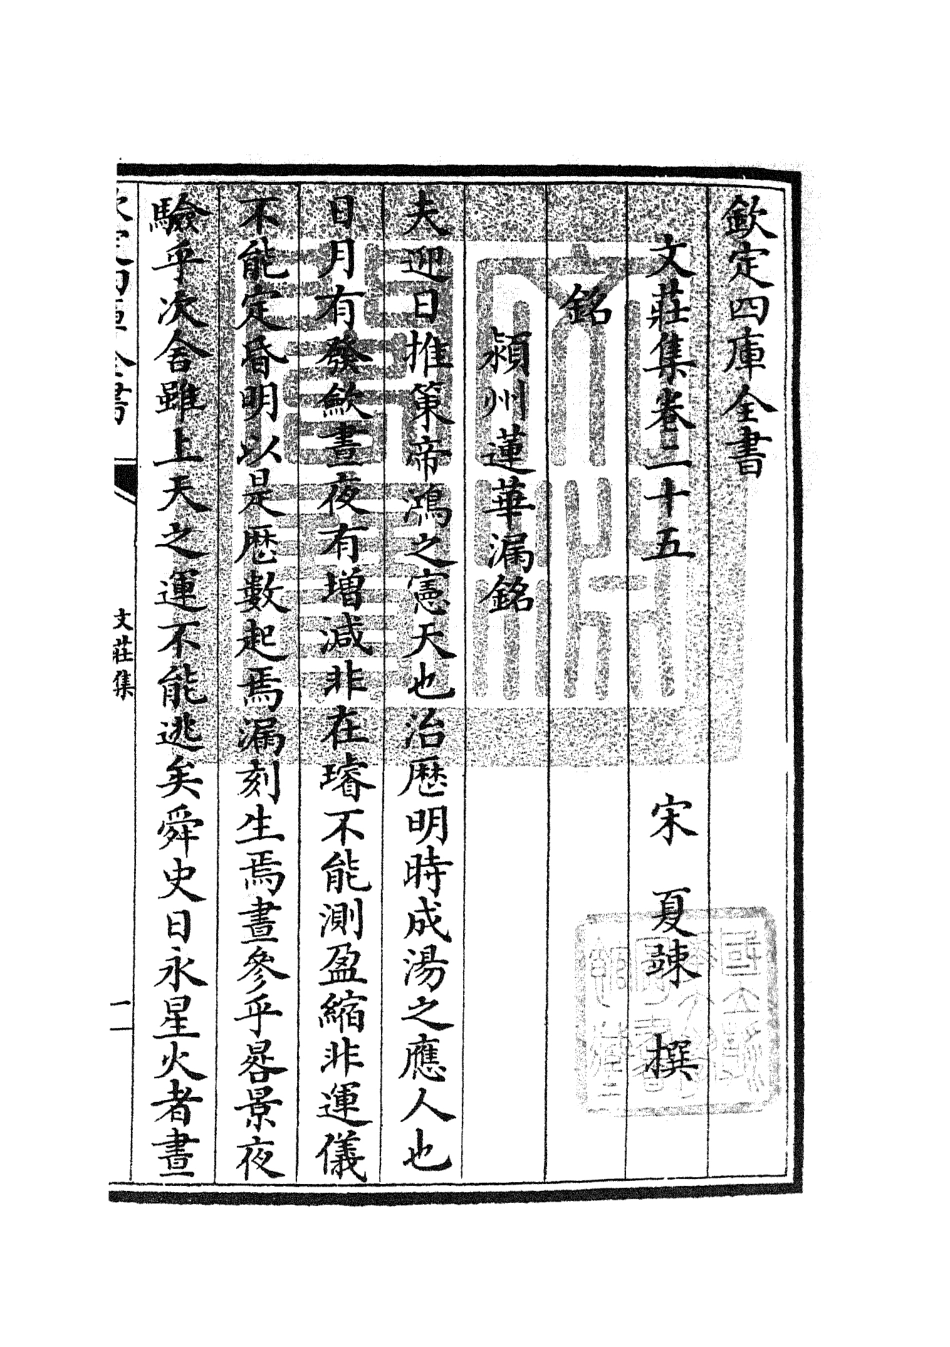 欽定四庫全書
文莊集卷二十五　宋　夏竦　撰
銘
潁州蓮華漏銘
夫迎日推策帝鴻之憲天也治歴明時成湯之應人也
日月有發歛晝夜有增減非在璿不能測盈縮非運儀
不能定昏明以是歴數起焉漏刻生焉晝參乎晷景夜
驗乎次舍雖上天之運不能逃矣舜史日永星火者晝
欽定四庫全書
文莊集
一